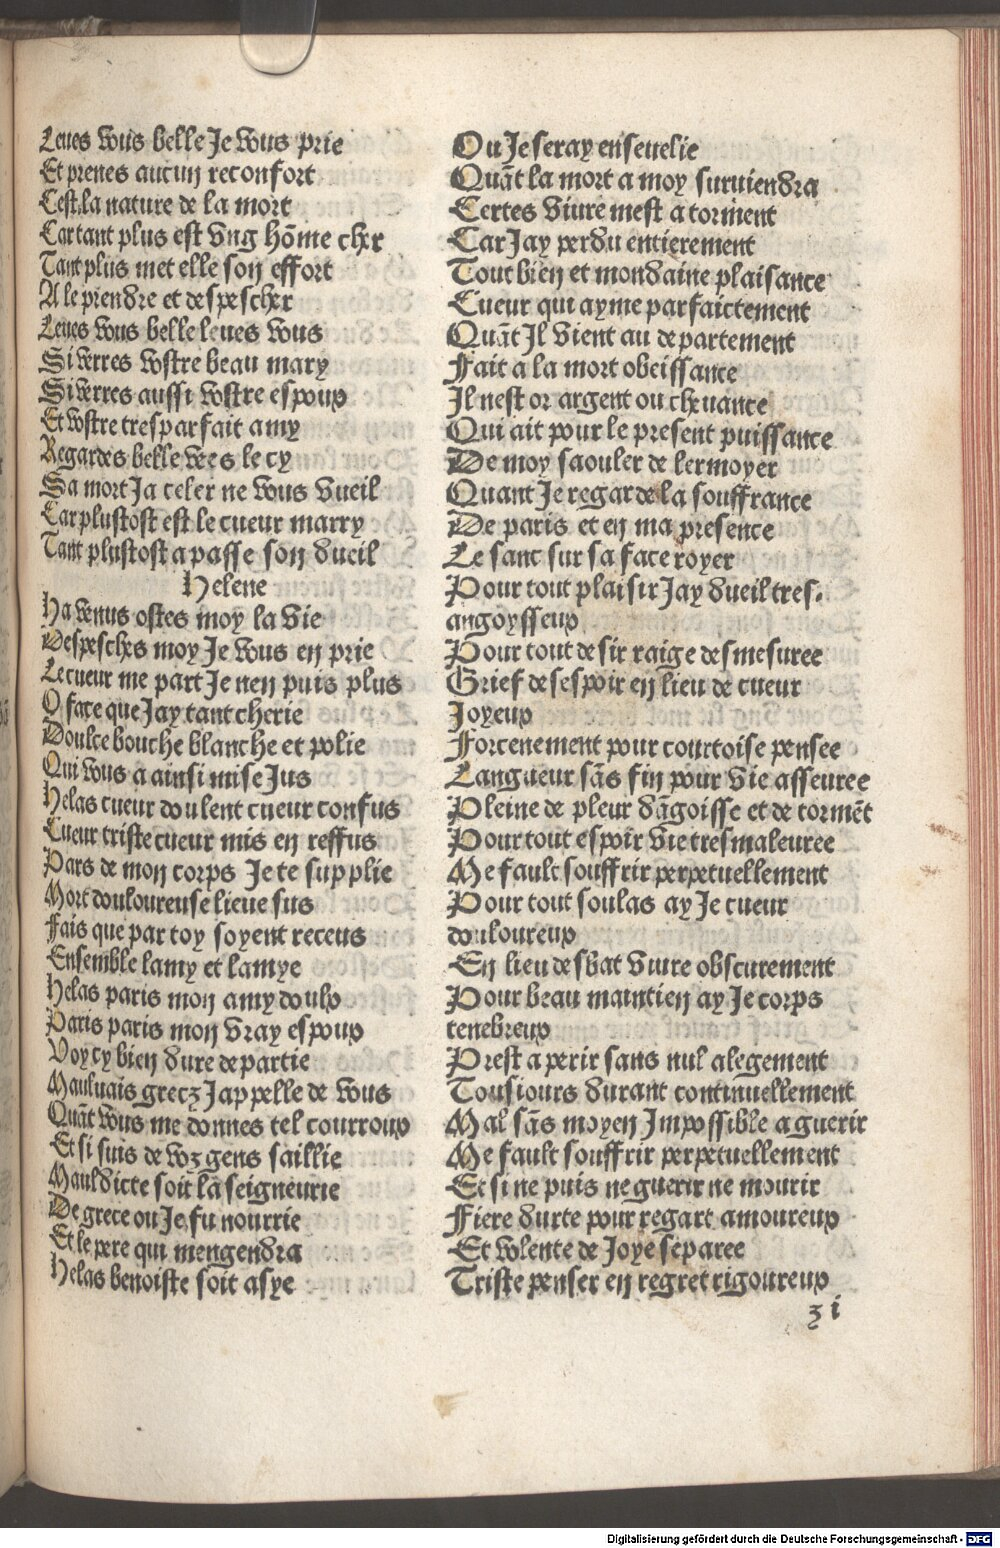 Leues vous belle Je vous prie
Et prenes aucun reconfort
Cest la nature de la mort
Car tant plus est vng hõme cher
Tant plus met elle son effort
A le piendre et despescher
Leues vous belle leues vous
Si verres vostre beau mary
Si verres aussi vostre espoux
Et vostre tresparfait amy
Regardes belle vees le cy
Sa mort Ja celer ne vous vueil
Car plustost est le cueur marry
Tant plustost a passe son dueil
Helene
Ha venus ostes moy la vie
Despesches moy Je vous en prie
Le cueur me part Je nen puis plus
O face que Jay tant cherie
Doulce bouche blanche et polie
Qui vous a ainsi mise Jus
Helas cueur doulent cueur confus
Cueur triste cueur mis en reffus
Pars de mon corps Je te supplie
Mort douloureuse lieue sus
Fais que par toy soyent receus
Ensemble lamy et lamye
Helas paris mon amy doulx
Paris paris mon vray espoux
Voycy bien dure departie
Maulvais grecz Jappelle de vous
Quãt vous me donnes tel courroux
Et si suis de voz gens saillie
Mauldicte soit la seigneurie
De grece ou Je fu nourrie
Et le pere qui mengendra
Helas benoiste soit asye
Ou Je seray enseuelie
Quãt la mort a moy suruiendra
Certes viure mest a torment
Car Jay perdu entierement
Tout bien et mondaine plaisance
Cueur qui ayme parfaictement
Quãt Il vient au departement
Fait a la mort obeissance
Il nest or argent ou cheuance
Qui ait pour le present puissance
De moy saouler de lermoyer
Quant Je regarde la souffrance
De paris et en ma presence
Le sanc sur sa face royer
Pour tout plaisir Jay dueil tres-
angoysseux
Pour tout desir raige desmesuree
Grief desespoir en lieu de cueur
Joyeux
Forcenement pour courtoise pensee
Langueur sãs fin pour vie asseuree
Pleine de pleur dãgoisse et de tormẽt
Pour tout espoir vie tresmaleuree
Me fault souffrir perpetuellement
Pour tout soulas ay Je cueur
douloureux
En lieu desbat viure obscurement
Pour beau maintien ay Je corps
tenebreux
Prest a perir sans nul alegement
Tousiours durant continuellement
Mal sãs moyen Impossible a guerir
Me fault souffrir perpetuellement
Et si ne puis ne guerir ne mourir
Fiere durte pour regart amoureux
Et volente de Joye separee
Triste penser en regret rigoureux
z i
Digitalisierung gefördert durch die Deutsche Forschungsgemeinschaft - DFG